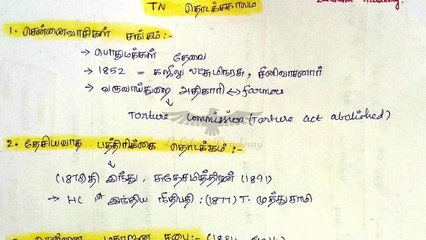 TN தொடக்ககாலம்
Academy.
1. சென்னைவாசிகள் சங்கம் :-
→ பொதுமக்கள் தேவை
→ 1852 = கஜுலு லட்சுமிநரசு, சீனிவாசனார்
→ வருவாய்துறை அதிகாரி ↔ farmers
Torture Commission (Torture act abolished)
2. தேசியவாத பத்திரிக்கை தொடக்கம் :-
(1878) தி இந்து, சுதேசமித்திரன் (1891)
→ HC 1st இந்திய நீதிபதி : (1877) T. முத்துசாமி